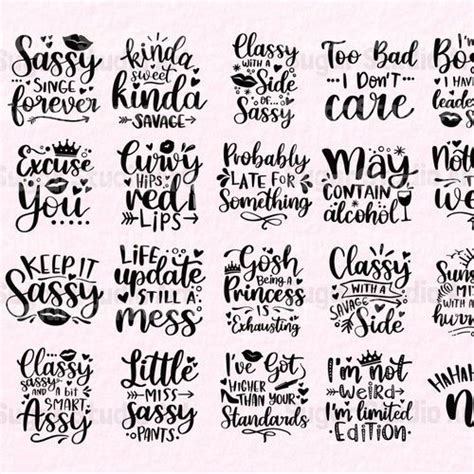 Sassy
SINGE
forever
kinda
sweet
kinda
SAVAGE
Classy
WITH A
Side
OF...
Sassy
Too Bad
I Don't
care
I'm
I HAV
Excuse
You
Curvy
HIPS
red
LIPS
Probably
LATE FOR
Something
may
CONTAIN
alcohol
KEEP IT
Sassy
LIFE
update
STILL A
mess
Gosh
Being a
Princess
IS
Exhausting
Classy
WITH A
SAVAGE
Side
Classy
sassy
AND A bit
SMART
Assy
Little
MISS
sassy
PANTS.
I've Got
HIGHER
THAN YOUR
Standards
I'm not
WEIRD
I'm limited
EDITION